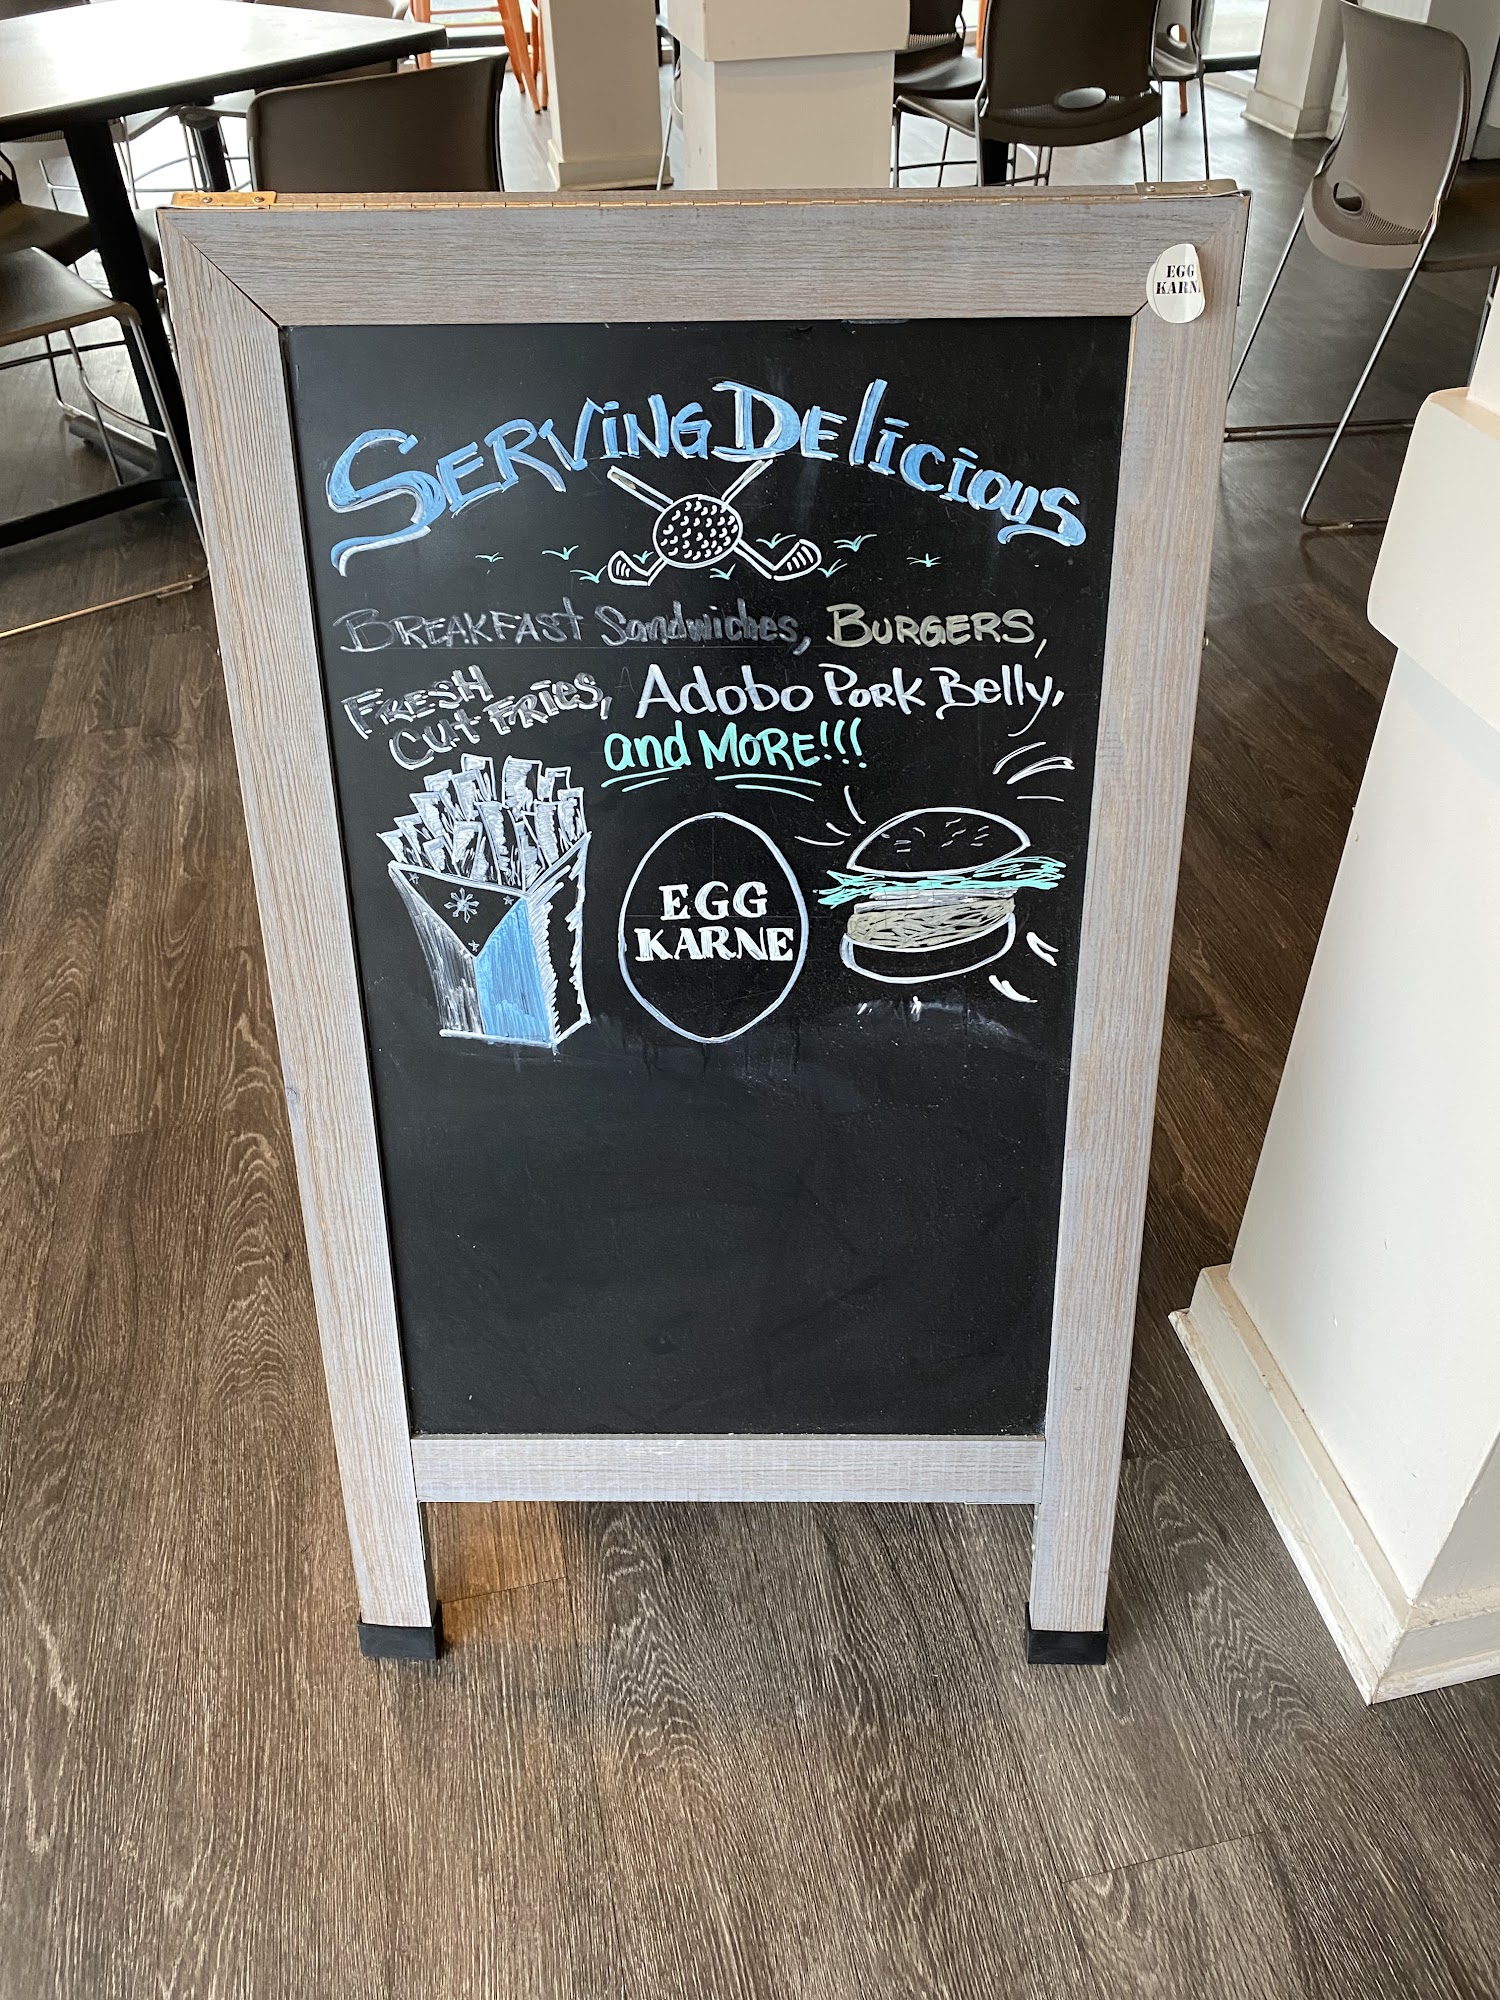 EGG
KARN
SERViNG DElicious
BREAKFASt Sandwiches, BURGERS,
FRESH
Cut FRiES, Adobo PoRk Belly,
and MoRE!!!
EGG
KARNE